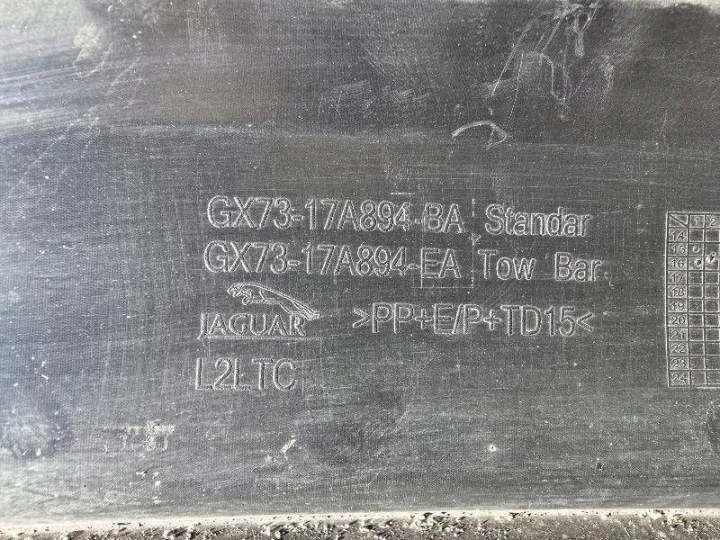 GX73-17A894-BA Standar
GX73-17A894-EA Tow Bar
JAGUAR >PP+E/P+TD15<
L2LTC
1 2
14
15
16
17
18
19
20
21
22
23
24